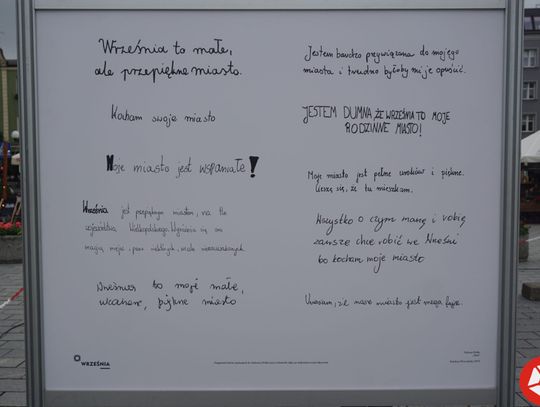 Września to małe,
ale przepiękne miasto.
Kocham swoje miasto
Moje miasto jest wspaniałe!
Września jest przepięknym miastem, na tle
województwa Wielkopolskiego. Wyróżnia się ona
magią miejsc, poza niektórych, wcale nieruszowanych.
Wrześnus to moje małe,
wcanem, piękne miasto
Jestem bardzo przywiązana do mojego
miasta i trudno byłoby mi je opuścić.
JESTEM DUMNA ŻE WRZEŚNIA TO MOJE
RODZINNE MIASTO!
Moje miasto jest pełne uroków i piękne.
Cieszę się, że tu mieszkam.
Wszystko o czym marzę i robię
zawsze chcę robić we Wrześni
bo kocham moje miasto
Uważam, że nasze miasto jest mega fajne.
WRZEŚNIA